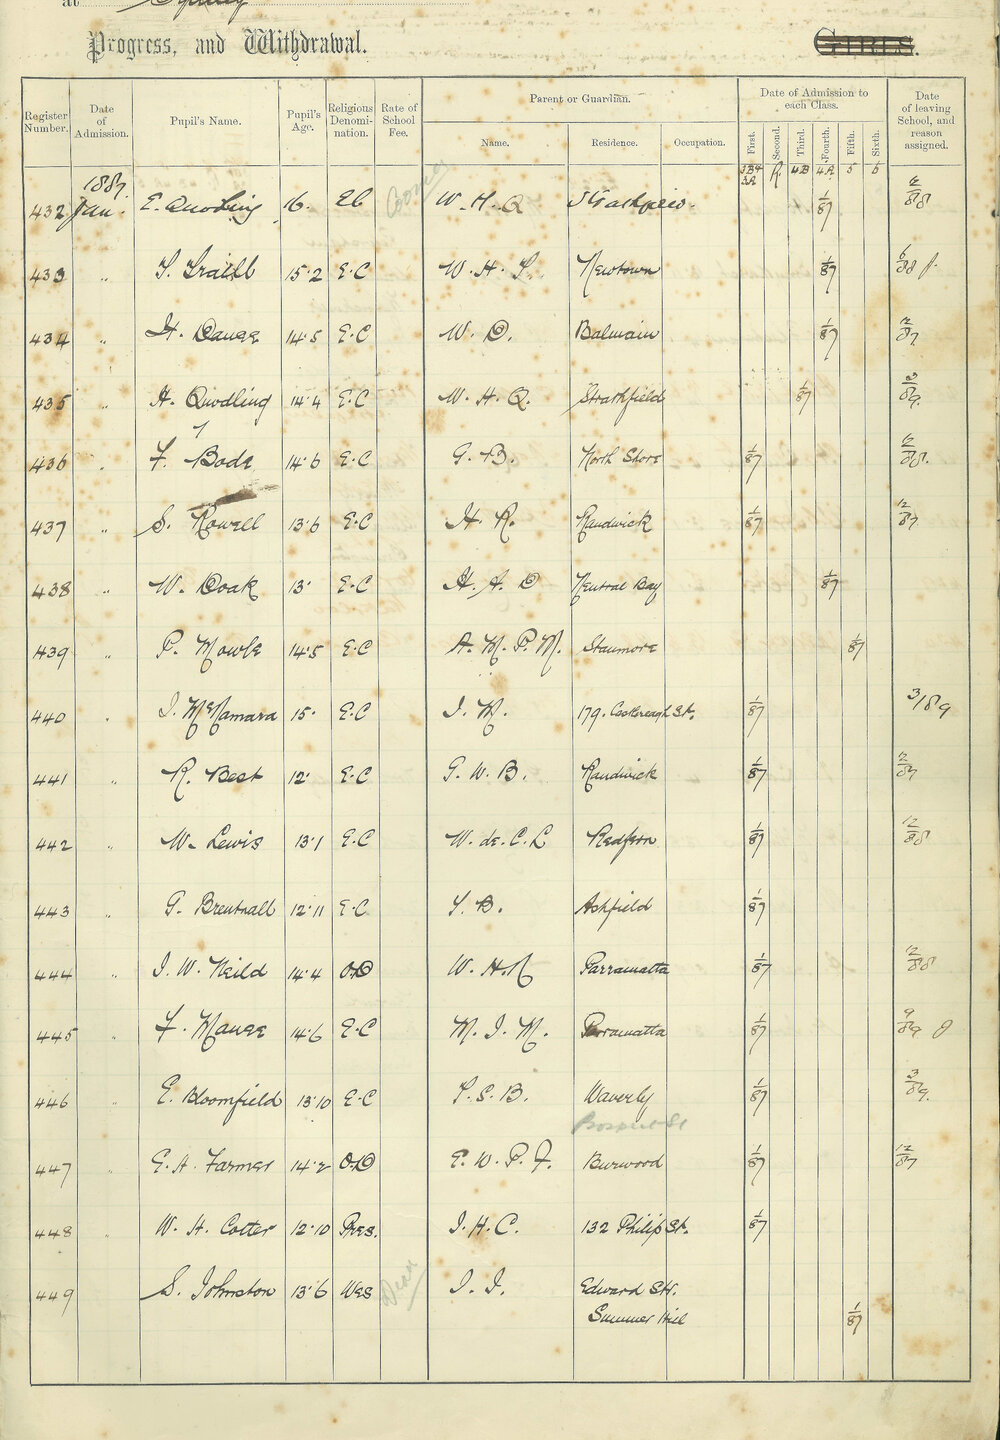 at Sydney
Progress, and Withdrawal. GIRLS.
Register Number. Date of Admission. Pupil's Name. Pupil's Age. Religious Denomi-nation. Rate of School Fee. Parent or Guardian. Name. Residence. Occupation. Date of Admission to each Class. First. Second. Third. Fourth. Fifth. Sixth. Date of leaving School, and reason assigned.
3B4 3A R 4B 4A 5 6
1887
432 Jan. E. Quodling 16. EC W. H. Q Strathfield. 1/87 6/88
433 " 15.2 E.C Newtown 1/87 6/88
434 " 14.5 E.C W. D. Balmain 1/87 12/87
435 " H. Quodling 14.4 E.C W. H. Q. Strathfield 1/87 3/89.
436 " F. Bode 14.6 E.C G. B. North Shore 1/87 12/88.
437 " S. Rowell 13.6 E.C H. R. Randwick 1/87 12/87
438 " W. Doak 13. E.C H. A. D Neutral Bay 1/87
439 " P. Mowle 14.5 E.C A. M. P. M. Stanmore 1/87
440 " J. McNamara 15. E.C J. M. 179. Castlereagh St. 1/87 3/89
441 " R. Best 12. E.C G. W. B. Randwick 1/87
442 " W. Lewis 13.1 E.C W. de. C. L Redfern 1/87 12/88
443 " G. Brentnall 12.11 E.C T. B. Ashfield 1/87
444 " J. W. Neild 14.4 O.D W. H. N Parramatta 1/87 12/88
445 " F. Manse 14.6 E.C M. J. M. Parramatta 1/87 9/89
446 " E. Bloomfield 13.10 E.C T. S. B. Waverly 1/87 3/89.
Prospect St
447 " E. A. Farmer 14.2 O.D E. W. P. F. Burwood 1/87 12/87
448 W. H. Cotter 12.10 Pres. J. H. C. 132 Philip St. 1/87
449 S. Johnston 13.6 Wes J. J. Edward St.
Summer Hill 1/87